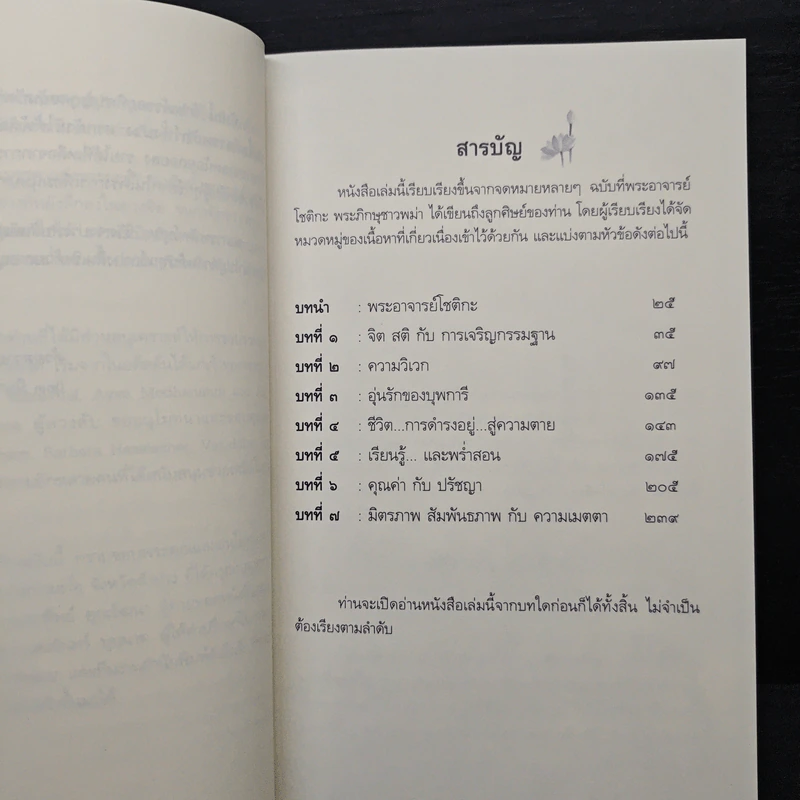 สารบัญ
หนังสือเล่มนี้เรียบเรียงขึ้นจากจดหมายหลายๆ ฉบับที่พระอาจารย์
โชติกะ พระภิกษุชาวพม่า ได้เขียนถึงลูกศิษย์ของท่าน โดยผู้เรียบเรียงได้จัด
หมวดหมู่ของเนื้อหาที่เกี่ยวเนื่องเข้าไว้ด้วยกัน และแบ่งตามหัวข้อดังต่อไปนี้
บทนำ : พระอาจารย์โชติกะ ๒๕
บทที่ ๑ : จิต สติ กับ การเจริญกรรมฐาน ๓๕
บทที่ ๒ : ความวิเวก ๙๗
บทที่ ๓ : อุ่นรักของบุพการี ๑๓๕
บทที่ ๔ : ชีวิต...การดำรงอยู่...สู่ความตาย ๑๔๓
บทที่ ๕ : เรียนรู้... และพร่ำสอน ๑๗๕
บทที่ ๖ : คุณค่า กับ ปรัชญา ๒๐๕
บทที่ ๗ : มิตรภาพ สัมพันธภาพ กับ ความเมตตา ๒๓๙
ท่านจะเปิดอ่านหนังสือเล่มนี้จากบทใดก่อนก็ได้ทั้งสิ้น ไม่จำเป็น
ต้องเรียงตามลำดับ